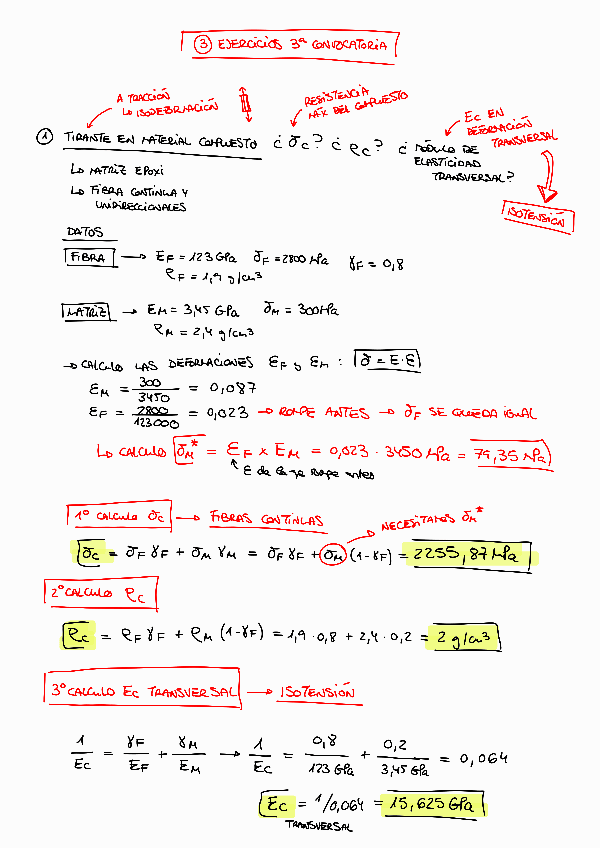 ③ EJERCICIOS 3ª CONVOCATORIA
A TRACCIÓN
↳ ISODEFORMACIÓN
RESISTENCIA
MÁX DEL COMPUESTO
EC EN
DEFORMACIÓN
TRANSVERSAL
① TIRANTE EN MATERIAL COMPUESTO ¿ σc? ¿ ρc? ¿ MÓDULO DE
ELASTICIDAD
TRANSVERSAL?
↳ MATRIZ EPOXI
↳ FIBRA CONTINUA Y
UNIDIRECCIONALES
ISOTENSIÓN
DATOS
FIBRA → EF = 123 GPa σF = 2800 MPa γF = 0,8
ρF = 1,9 g/cm³
MATRIZ → EM = 3,45 GPa σM = 300 MPa
ρM = 2,4 g/cm³
→ CALCULO LAS DEFORMACIONES εF y εM : σ = E·ε
εM = 300/3450 = 0,087
εF = 2800/123000 = 0,023 → ROMPE ANTES → σF SE QUEDA IGUAL
↳ CALCULO σM* = εF x EM = 0,023 · 3450 MPa = 79,35 MPa
↑ ε de la que rompe antes
1º CALCULO σc → FIBRAS CONTINUAS
NECESITAMOS σM*
σc = σF γF + σM γM = σF γF + σM (1-γF) = 2255,87 MPa
2º CALCULO ρc
ρc = ρF γF + ρM (1-γF) = 1,9 · 0,8 + 2,4 · 0,2 = 2 g/cm³
3º CALCULO EC TRANSVERSAL → ISOTENSIÓN
1/EC = γF/EF + γM/EM → 1/EC = 0,8/123 GPa + 0,2/3,45 GPa = 0,064
EC = 1/0,064 = 15,625 GPa
TRANSVERSAL